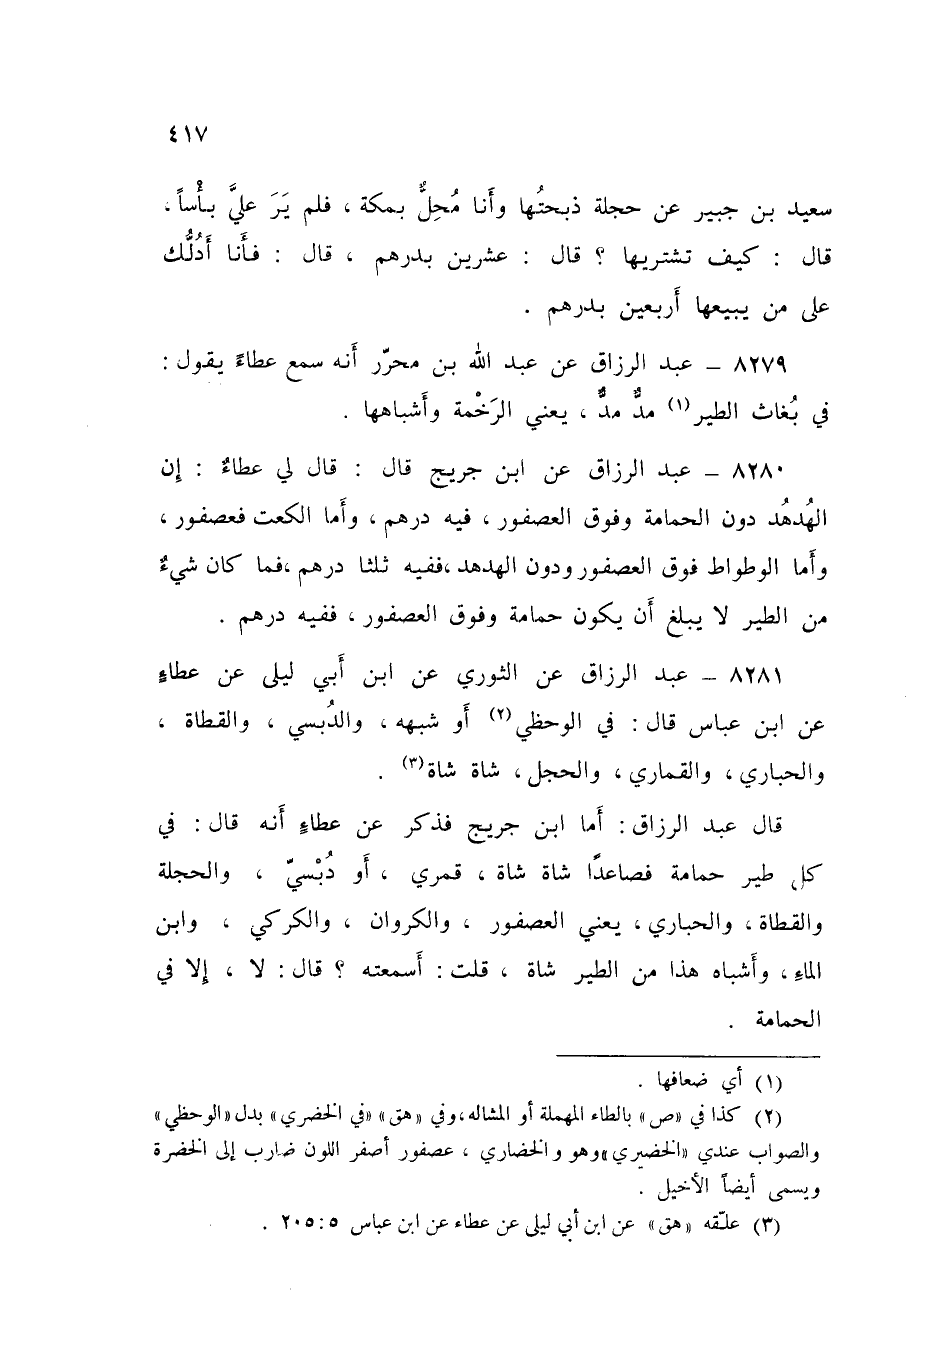 ٤١٧
سعيد بن جبير عن حجلة ذبحتُها وأَنا مُحِلٌّ بمكة ، فلم يَرَ عليَّ بأْساً ،
قال : كيف تشتريها ؟ قال : عشرين بدرهم ، قال : فأَنا أَدُلُّك
على من يبيعها أَربعين بدرهم .
٨٢٧٩ – عبد الرزاق عن عبد الله بن محرّر أَنه سمع عطاءً يقول :
في بُغاث الطير(١) مدٌّ مدٌّ ، يعني الرَخْمة وأَشباهها .
٨٢٨٠ – عبد الرزاق عن ابن جريج قال : قال لي عطاءٌ : إن
الهُدهُد دون الحمامة وفوق العصفور ، فيه درهم ، وأَما الكعت فعصفور ،
وأَما الوطواط فوق العصفور ودون الهدهد ،ففيه ثلثا درهم ،فما كان شيءٌ
من الطير لا يبلغ أَن يكون حمامة وفوق العصفور ، ففيه درهم .
٨٢٨١ – عبد الرزاق عن الثوري عن ابن أَبي ليلى عن عطاءٍ
عن ابن عباس قال : في الوحظي(٢) أَو شبهه ، والدُبسي ، والقطاة ،
والحباري ، والقماري ، والحجل ، شاة شاة(٣) .
قال عبد الرزاق : أَما ابن جريج فذكر عن عطاءٍ أَنه قال : في
كل طير حمامة فصاعدًا شاة شاة ، قمري ، أَو دُبْسيّ ، والحجلة
والقطاة ، والحباري ، يعني العصفور ، والكروان ، والكركي ، وابن
الماءِ ، وأَشباه هذا من الطير شاة ، قلت : أَسمعته ؟ قال : لا ، إلا في
الحمامة .
(١) أي ضعافها .
(٢) كذا في «ص» بالطاء المهملة أو المشاله ،وفي «هق» «في الخضري» بدل «الوحظي»
والصواب عندي «الخضيري»وهو والخضاري ، عصفور أصفر اللون ضارب إلى الخضرة
ويسمى أيضاً الأخيل .
(٣) علّقه «هق» عن ابن أبي ليلى عن عطاء عن ابن عباس ٥ : ٢٠٥ .